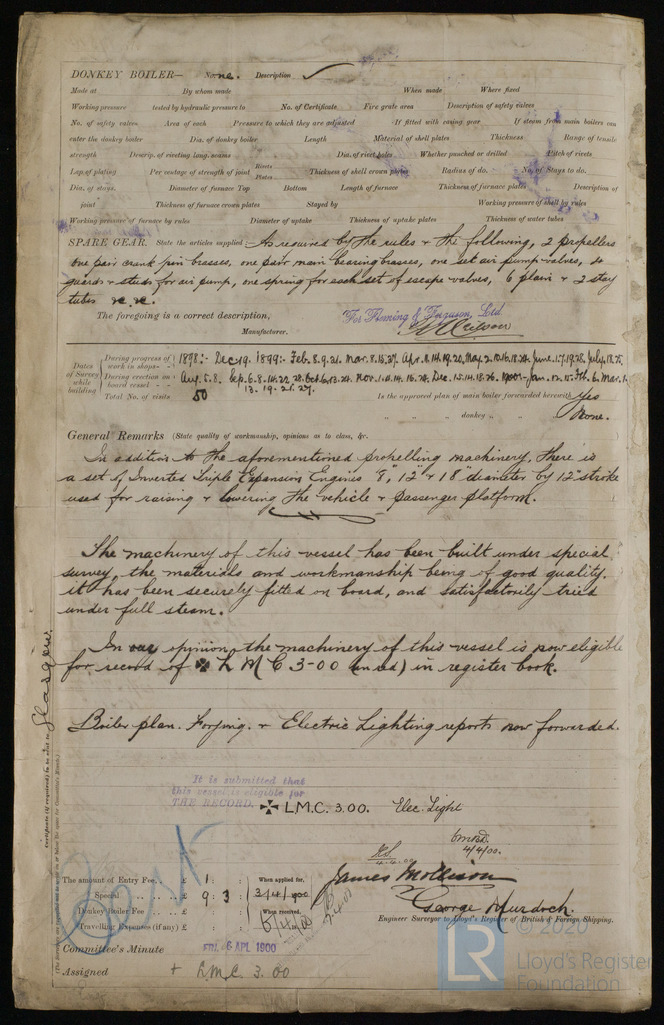 DONKEY BOILER— No. ne. Description ✓
Made at By whom made When made Where fixed
Working pressure tested by hydraulic pressure to No. of Certificate Fire grate area Description of safety valves
No. of safety valves Area of each Pressure to which they are adjusted If fitted with easing gear If steam from main boilers can
enter the donkey boiler Dia. of donkey boiler Length Material of shell plates Thickness Range of tensile
strength Descrip. of riveting long. seams Dia. of rivet holes Whether punched or drilled Pitch of rivets
Lap of plating Per centage of strength of joint Rivets Plates Thickness of shell crown plates Radius of do. No. of Stays to do.
Dia. of stays. Diameter of furnace Top Bottom Length of furnace Thickness of furnace plates Description of
joint Thickness of furnace crown plates Stayed by Working pressure of shell by rules
Working pressure of furnace by rules Diameter of uptake Thickness of uptake plates Thickness of water tubes
SPARE GEAR. State the articles supplied:— As required by the rules & the following, 2 propellers
one pair crank pin brasses, one pair main bearing brasses, one set air pump valves, 4
guards & studs for air pump, one spring for each set of escape valves, 6 plain & 2 stay
tubes
The foregoing is a correct description,
For Fleming & Ferguson, Ltd
Manufacturer.
Dates of Survey while building
During progress of work in shops— 1898:- Dec. 19. 1899:- Feb. 8. 9. 21. Mar. 8. 15. 27. Apr. 11. 14. 19. 20. May. 2. 12. 16. 18. 24. June. 1. 7. 19. 28. July. 4. 18. 25.
During erection on board vessel— Aug. 5. 8. Sep. 6. 8. 14. 22. 28. Oct. 6. 13. 24. Nov. 1. 14. 16. 24. Dec. 15. 14. 18. 26. 1900:- Jan. 12. 15. Feb. 6. Mar. 1.
13. 19. 21. 27.
Total No. of visits 50 Is the approved plan of main boiler forwarded herewith Yes
" " " donkey " " " None.
General Remarks (State quality of workmanship, opinions as to class, &c.
In addition to the aforementioned propelling machinery, there is
a set of Inverted Triple Expansion Engines 8", 12" & 18" diameter by 12" stroke
used for raising & lowering the vehicle & passenger platform.
The machinery of this vessel has been built under special
survey, the materials and workmanship being of good quality.
it has been securely fitted on board, and satisfactorily tried
under full steam.
In our opinion the machinery of this vessel is now eligible
for record of ✠ L M C 3-00 (in red) in register book.
Boiler plan. Forging. & Electric Lighting reports now forwarded.
It is submitted that
this vessel is eligible for
THE RECORD. ✠ L.M.C. 3.00. Elec. Light
4/4/00.
The amount of Entry Fee.. £ 1 : : When applied for,
Special .. £ 9 : 3 : 3/4/1900
Donkey Boiler Fee .. £ : : When received,
Travelling Expenses (if any) £ : : 5/4/00
James Mollison
George Murdoch.
Engineer Surveyor to Lloyd's Register of British & Foreign Shipping.
Committee's Minute FRI. 6 APL 1900
Assigned + L.M.C. 3.00
Glasgow.
Certificate (if required) to be sent to
© 2020
LR
Lloyd's Register
Foundation